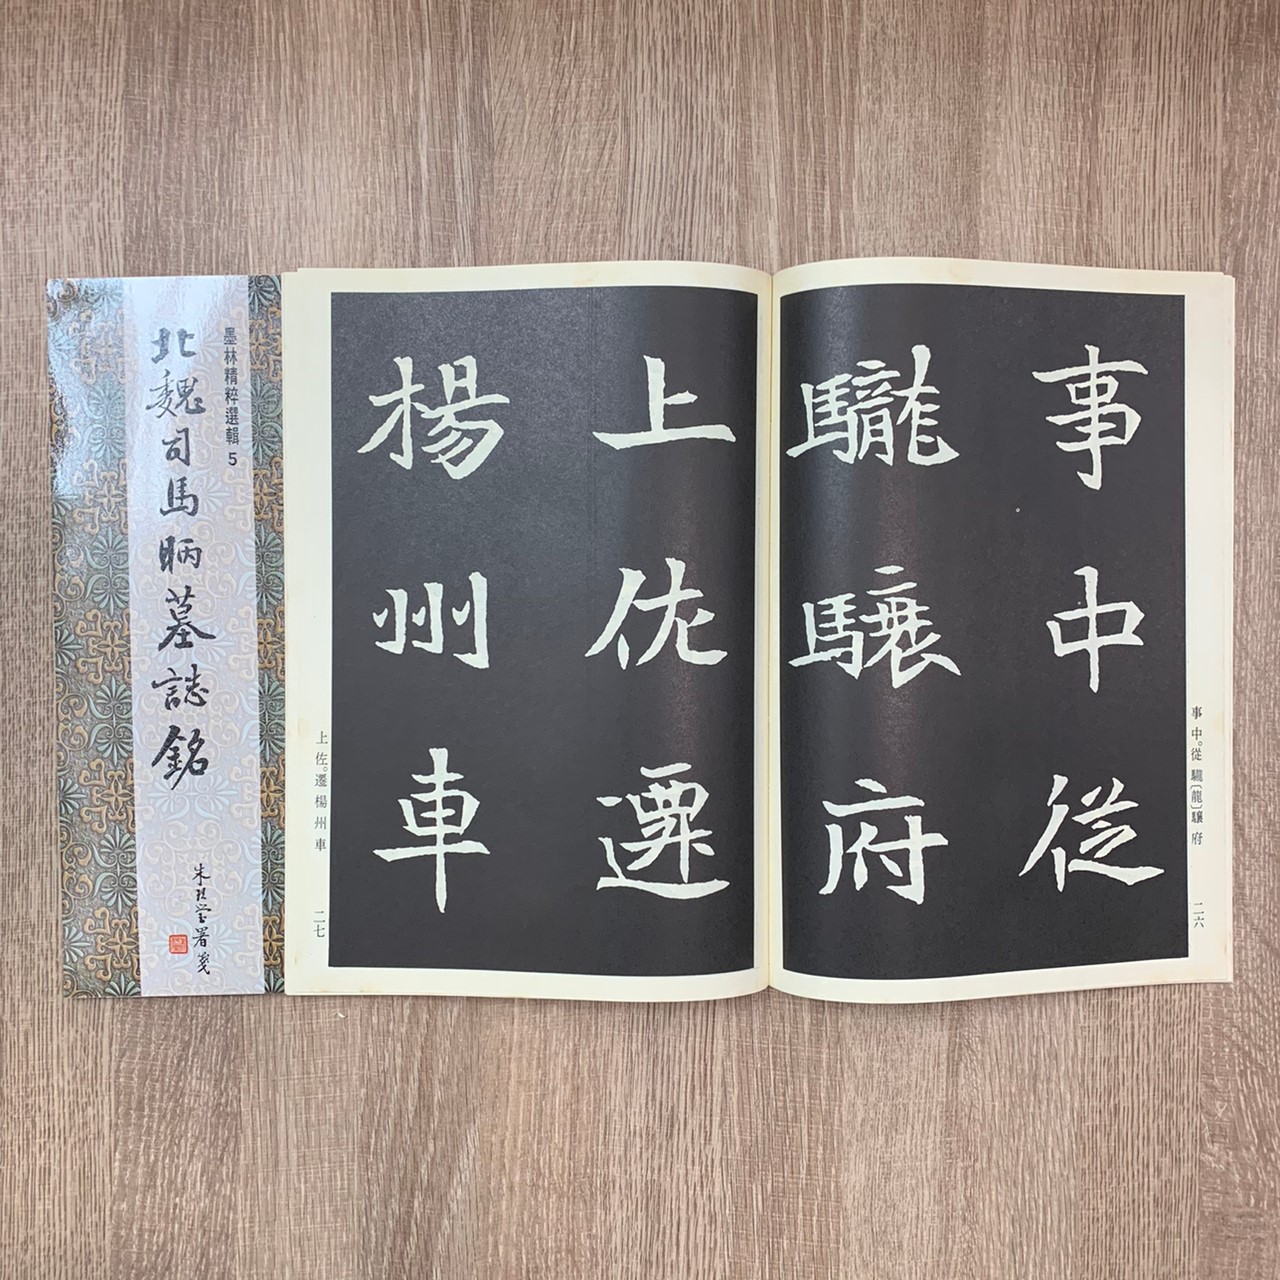 墨林精粹選輯 5
北魏司馬昞墓誌銘
朱玖瑩署箋
事中從
驡驤府
上佐遷
楊州車
事中。從驡〔龍〕驤府
二六
上佐。遷楊州車
二七